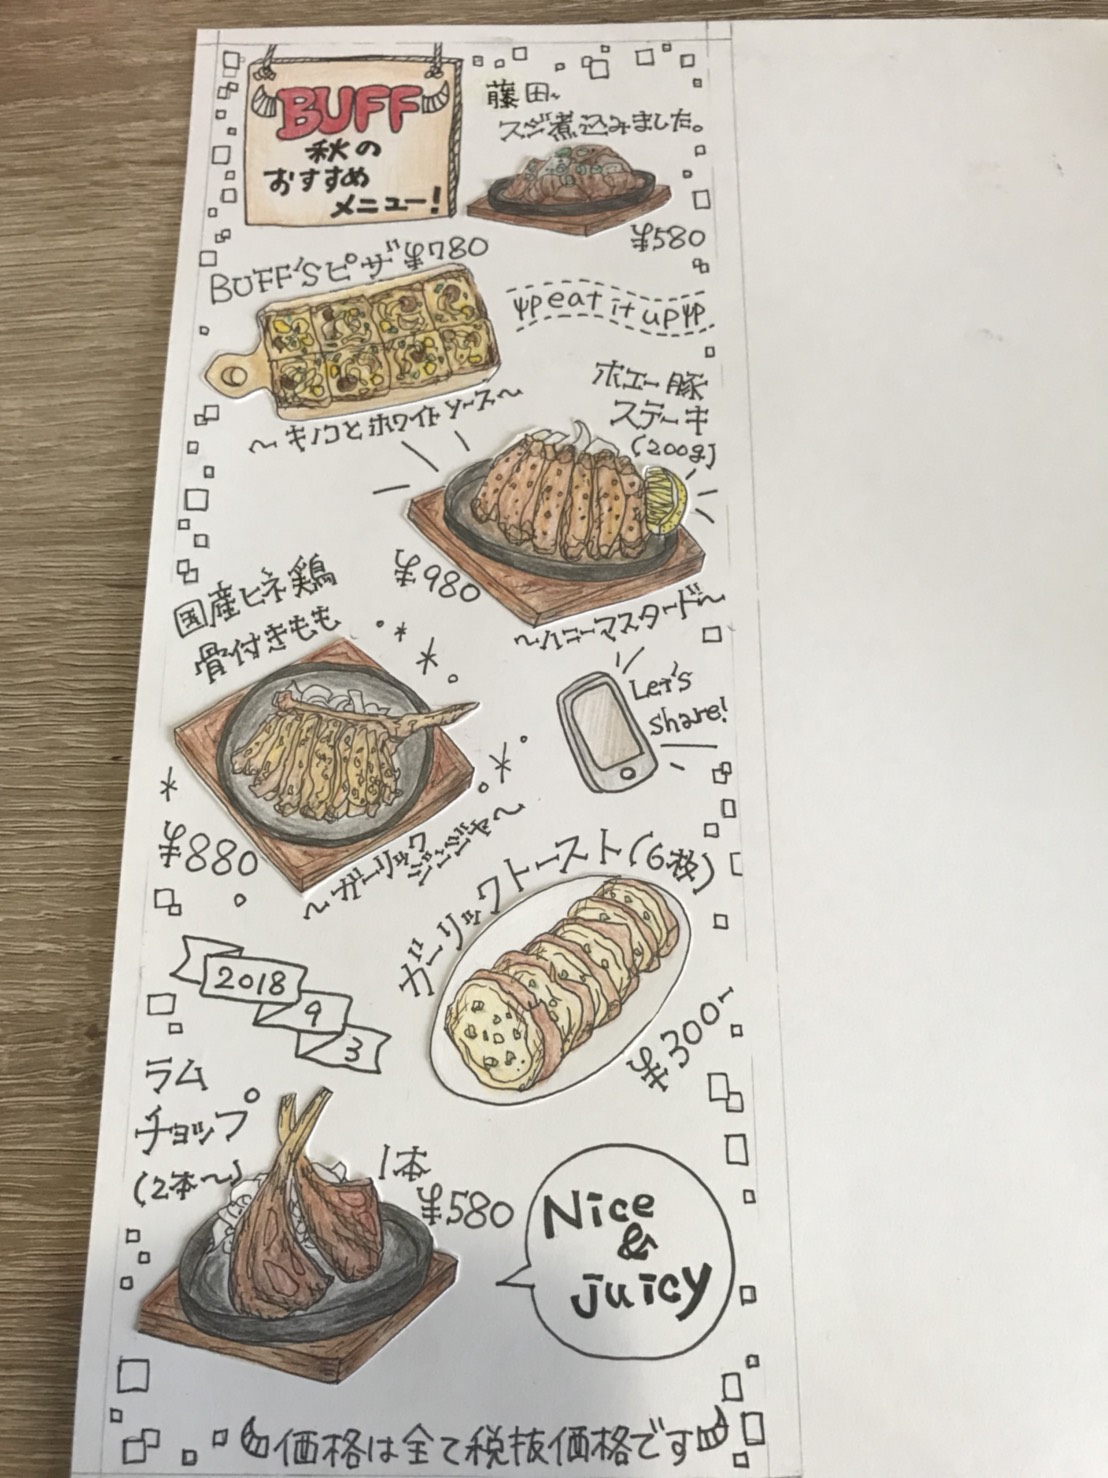 BUFF
秋の
おすすめ
メニュー!
藤田、
スジ煮込みました。
¥580
BUFF'Sピザ ¥780
〜キノコとホワイトソース〜
eat it up
ホエー豚
ステーキ
(200g)
¥980
〜ハニーマスタード〜
国産ヒネ鶏
骨付きもも
¥880
〜ガーリック
ジンジャー〜
Let's
share!
ガーリックトースト(6枚)
¥300-
2018
9
3
ラム
チョップ
(2本〜)
1本
¥580
Nice
&
juicy
価格は全て税抜価格です